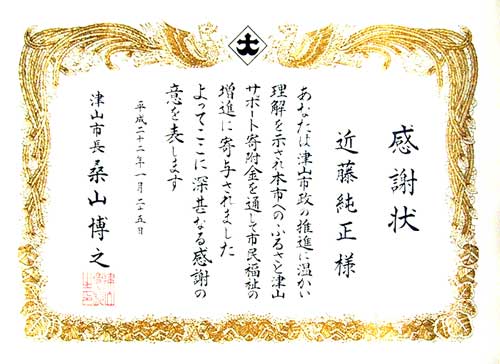 感謝状
近藤純正様
あなたは津山市政の推進に温かい
理解を示され本市へのふるさと津山
サポート寄附金を通して市民福祉の
増進に寄与されました
よってここに深甚なる感謝の
意を表します
平成二十二年一月二五日
津山市長 桑山博之